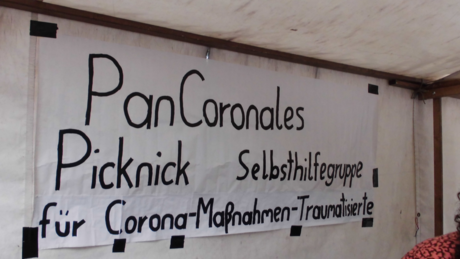 PanCoronales
Picknick Selbsthilfegruppe
für Corona-Maßnahmen-Traumatisierte